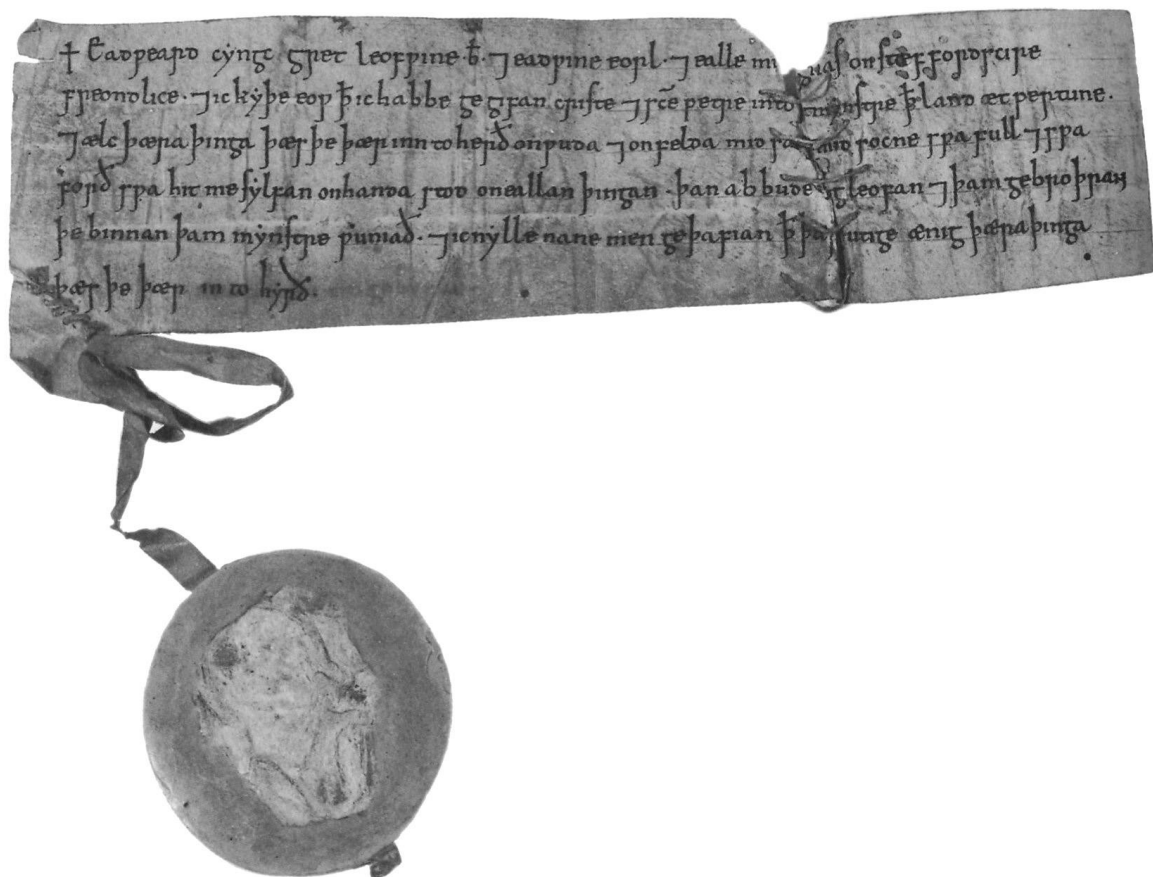 ✝ Eadƿeard cyngc gret leofƿine · b̄ · ⁊ eadƿine eorl · ⁊ ealle mi ðegnas on stæffordscire
freondlice · ⁊ ic kyþe eoƿ ꝥ ic habbe gegifan criste ⁊ sc̄e petre into ꝥ land æt pertune ·
⁊ ælc þæra þinga þæs þe þær inn to herð on ƿuda ⁊ on felda mid and socne sƿa full ⁊ sƿa
forð sƿa hit me sylfan on handa stod on eallan þingan · þan abbude leofan ⁊ þam gebroþran
þe binnan þam mynstre ƿuniað · ⁊ ic nylle nane men geþafian ꝥ þær utige ænig þæra þinga
þæs þe þær in to hyrð ·